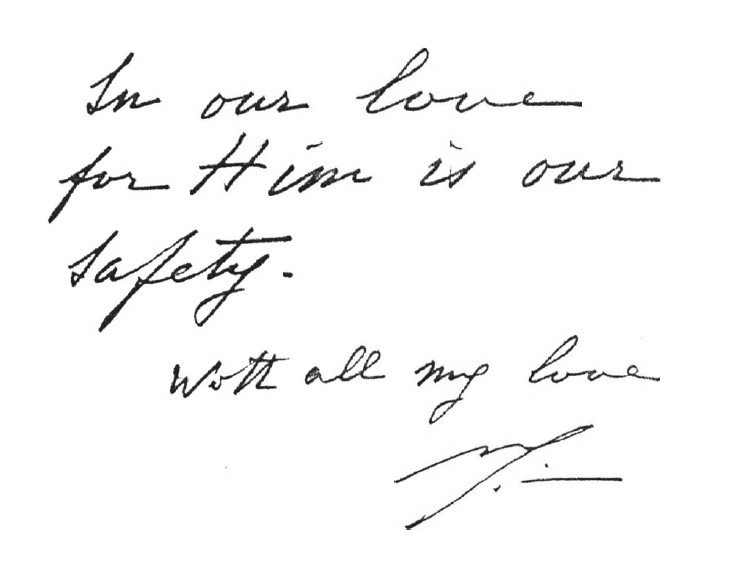 In our love
for Him is our
safety.
With all my love